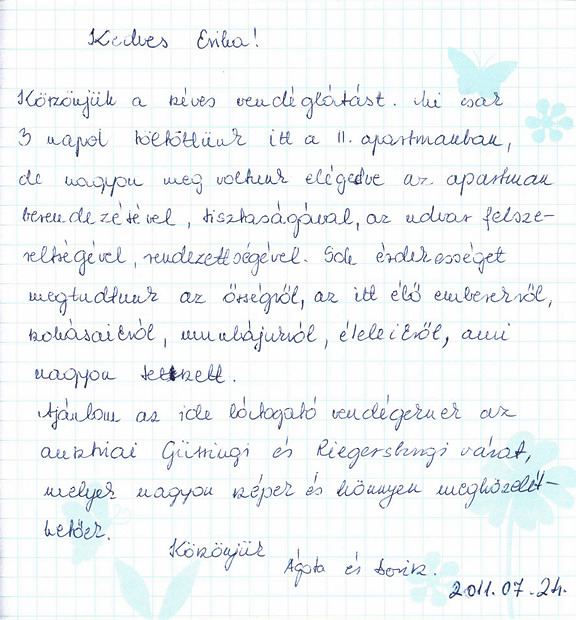 Kedves Erika!
Köszönjük a kéves vendéglátást. Mi csak
3 napot töltöttünk itt a II. apartmanban,
de nagyon meg voltunk elégedve az apartman
berendezésével, tisztaságával, az udvar felsze-
reltségével, rendezettségével. Sok érdekességet
megtudtunk az őrségről, az itt élő emberekről,
szokásaikról, munkájukról, életeikről, ami
nagyon tetszett.
Ajánlom az ide látogató vendégeknek az
ausztriai Güssingi és Riegersburgi várat,
melyek nagyon szépek és könnyen megközelít-
hetőek.
Köszönjük
Ágota és
2011.07.24.